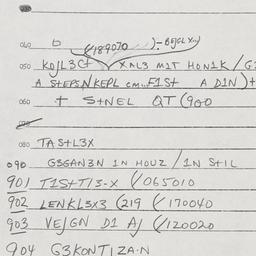 040 D (/189070 )-BEJGL X
050 KOJL3C+ XAL3 M1T HON1K / G
A STEPS/NKEPL CM.. F1ST A D1N)+
060 + S+NEL QT (900
080 TAS+L3X
090 G3GAN3N 1N HOUZ / 1N S+1L
901 T1S+T13-X (/065010
902 LENKL3X3 (219 (/170040
903 VEJGN D1 AJ (/120020
904 G3KONT1ZA-N